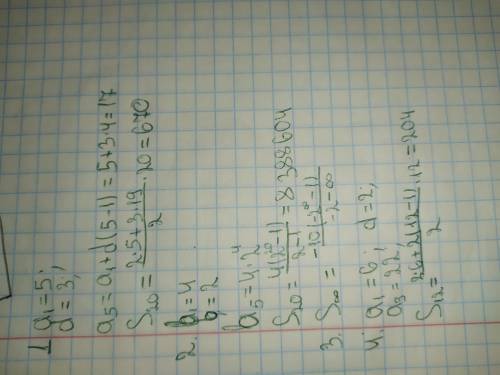 1 a₁=5;
d=3;
a₅=a₁+d(5-1)=5+3·4=17
S₂₀= (2·5+3·19)/2 ·20=670
2. b₁=4
b,=2
b₅=4·2⁴
S₂₀= 4(2²⁰-1)/(2-1) =8388604
3. S∞ =
4. a₁=6; d=2;
a₉=22;
S₁₂= (2·6+2(12-1))/2 ·12=204